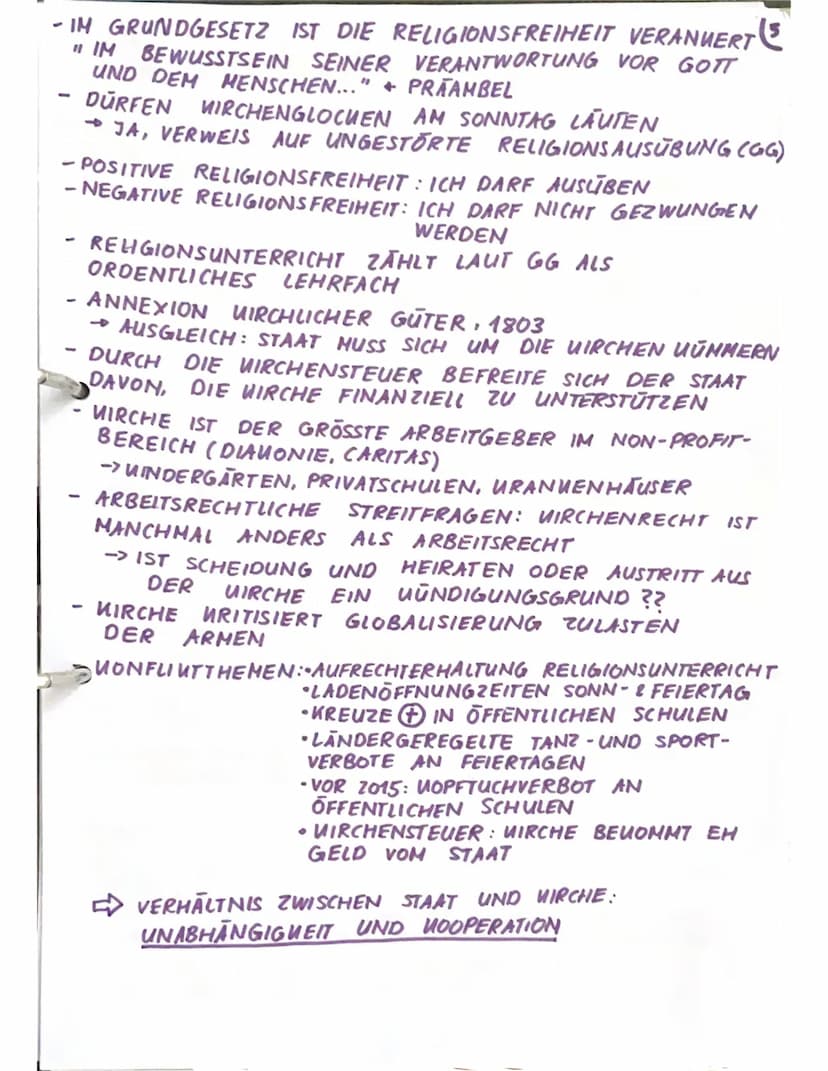 - IM GRUNDGESETZ IST DIE RELIGIONSFREIHEIT VERANKERT
"IM BEWUSSTSEIN SEINER VERANTWORTUNG VOR GOTT
UND DEM MENSCHEN..." + PRÄAMBEL
- DÜRFEN KIRCHENGLOCKEN AM SONNTAG LÄUTEN
→ JA, VERWEIS AUF UNGESTÖRTE RELIGIONSAUSÜBUNG (GG)
- POSITIVE RELIGIONSFREIHEIT: ICH DARF AUSÜBEN
- NEGATIVE RELIGIONSFREIHEIT: ICH DARF NICHT GEZWUNGEN
WERDEN
- RELIGIONSUNTERRICHT ZÄHLT LAUT GG ALS
ORDENTLICHES LEHRFACH
- ANNEXION KIRCHLICHER GÜTER, 1803
→ AUSGLEICH: STAAT MUSS SICH UM DIE KIRCHEN KÜMMERN
- DURCH DIE KIRCHENSTEUER BEFREITE SICH DER STAAT
DAVON, DIE KIRCHE FINANZIELL ZU UNTERSTÜTZEN
- KIRCHE IST DER GRÖSSTE ARBEITGEBER IM NON-PROFIT-
BEREICH (DIAKONIE, CARITAS)
-> KINDERGÄRTEN, PRIVATSCHULEN, KRANKENHÄUSER
- ARBEITSRECHTLICHE STREITFRAGEN: KIRCHENRECHT IST
MANCHMAL ANDERS ALS ARBEITSRECHT
-> IST SCHEIDUNG UND HEIRATEN ODER AUSTRITT AUS
DER KIRCHE EIN KÜNDIGUNGSGRUND ??
- KIRCHE KRITISIERT GLOBALISIERUNG ZULASTEN
DER ARMEN
KONFLIKTTHEMEN: • AUFRECHTERHALTUNG RELIGIONSUNTERRICHT
• LADENÖFFNUNGZEITEN SONN- & FEIERTAG
• KREUZE IN ÖFFENTLICHEN SCHULEN
• LÄNDERGEREGELTE TANZ- UND SPORT-
VERBOTE AN FEIERTAGEN
• VOR 2015: KOPFTUCHVERBOT AN
ÖFFENTLICHEN SCHULEN
• KIRCHENSTEUER: KIRCHE BEKOMMT EH
GELD VOM STAAT
⇨ VERHÄLTNIS ZWISCHEN STAAT UND KIRCHE:
UNABHÄNGIGKEIT UND KOOPERATION